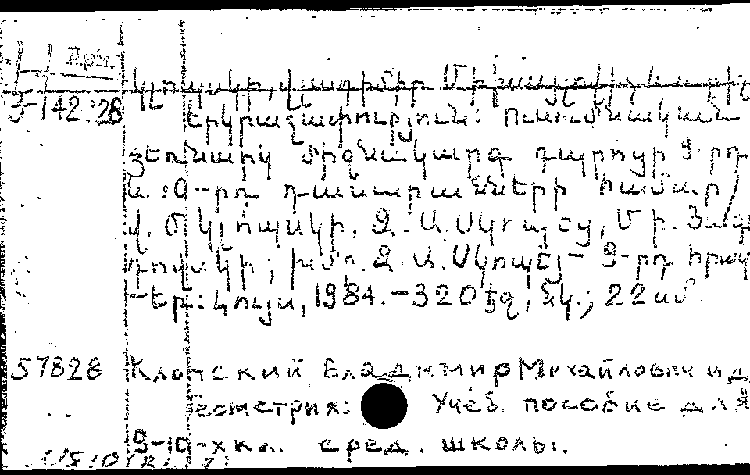 Арм.
Կլոպսկի, Վլադիմիր Միխայլովիչ և ուրիշ
3-142:28 Երկրաչափություն: Ուսումնական
ձեռնարկ միջնակարգ դպրոցի 9-րդ
և 10-րդ դասարանների համար /
Վ. Մ. Կլոպսկի, Զ. Ա. Սկոպեց, Մ. Ի. Յագո
դովսկի; խմբ. Զ. Ա. Սկոպեց - 9-րդ հրատ
-Եր.: Լույս, 1984.-320 էջ, նկ.; 22 սմ.
57828 Клопский Владимир Михайлович и д
Геометрия: Учеб. пособие для
9-10-х кл. сред. школы.